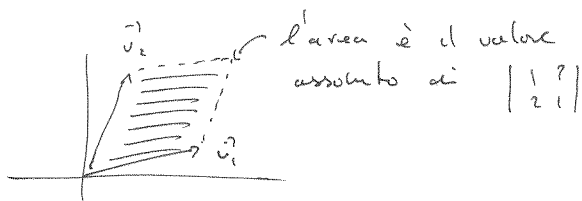 v⃗₂ l'area è il valore
assoluto di | 1 ? |
| 2 1 |
v⃗₁